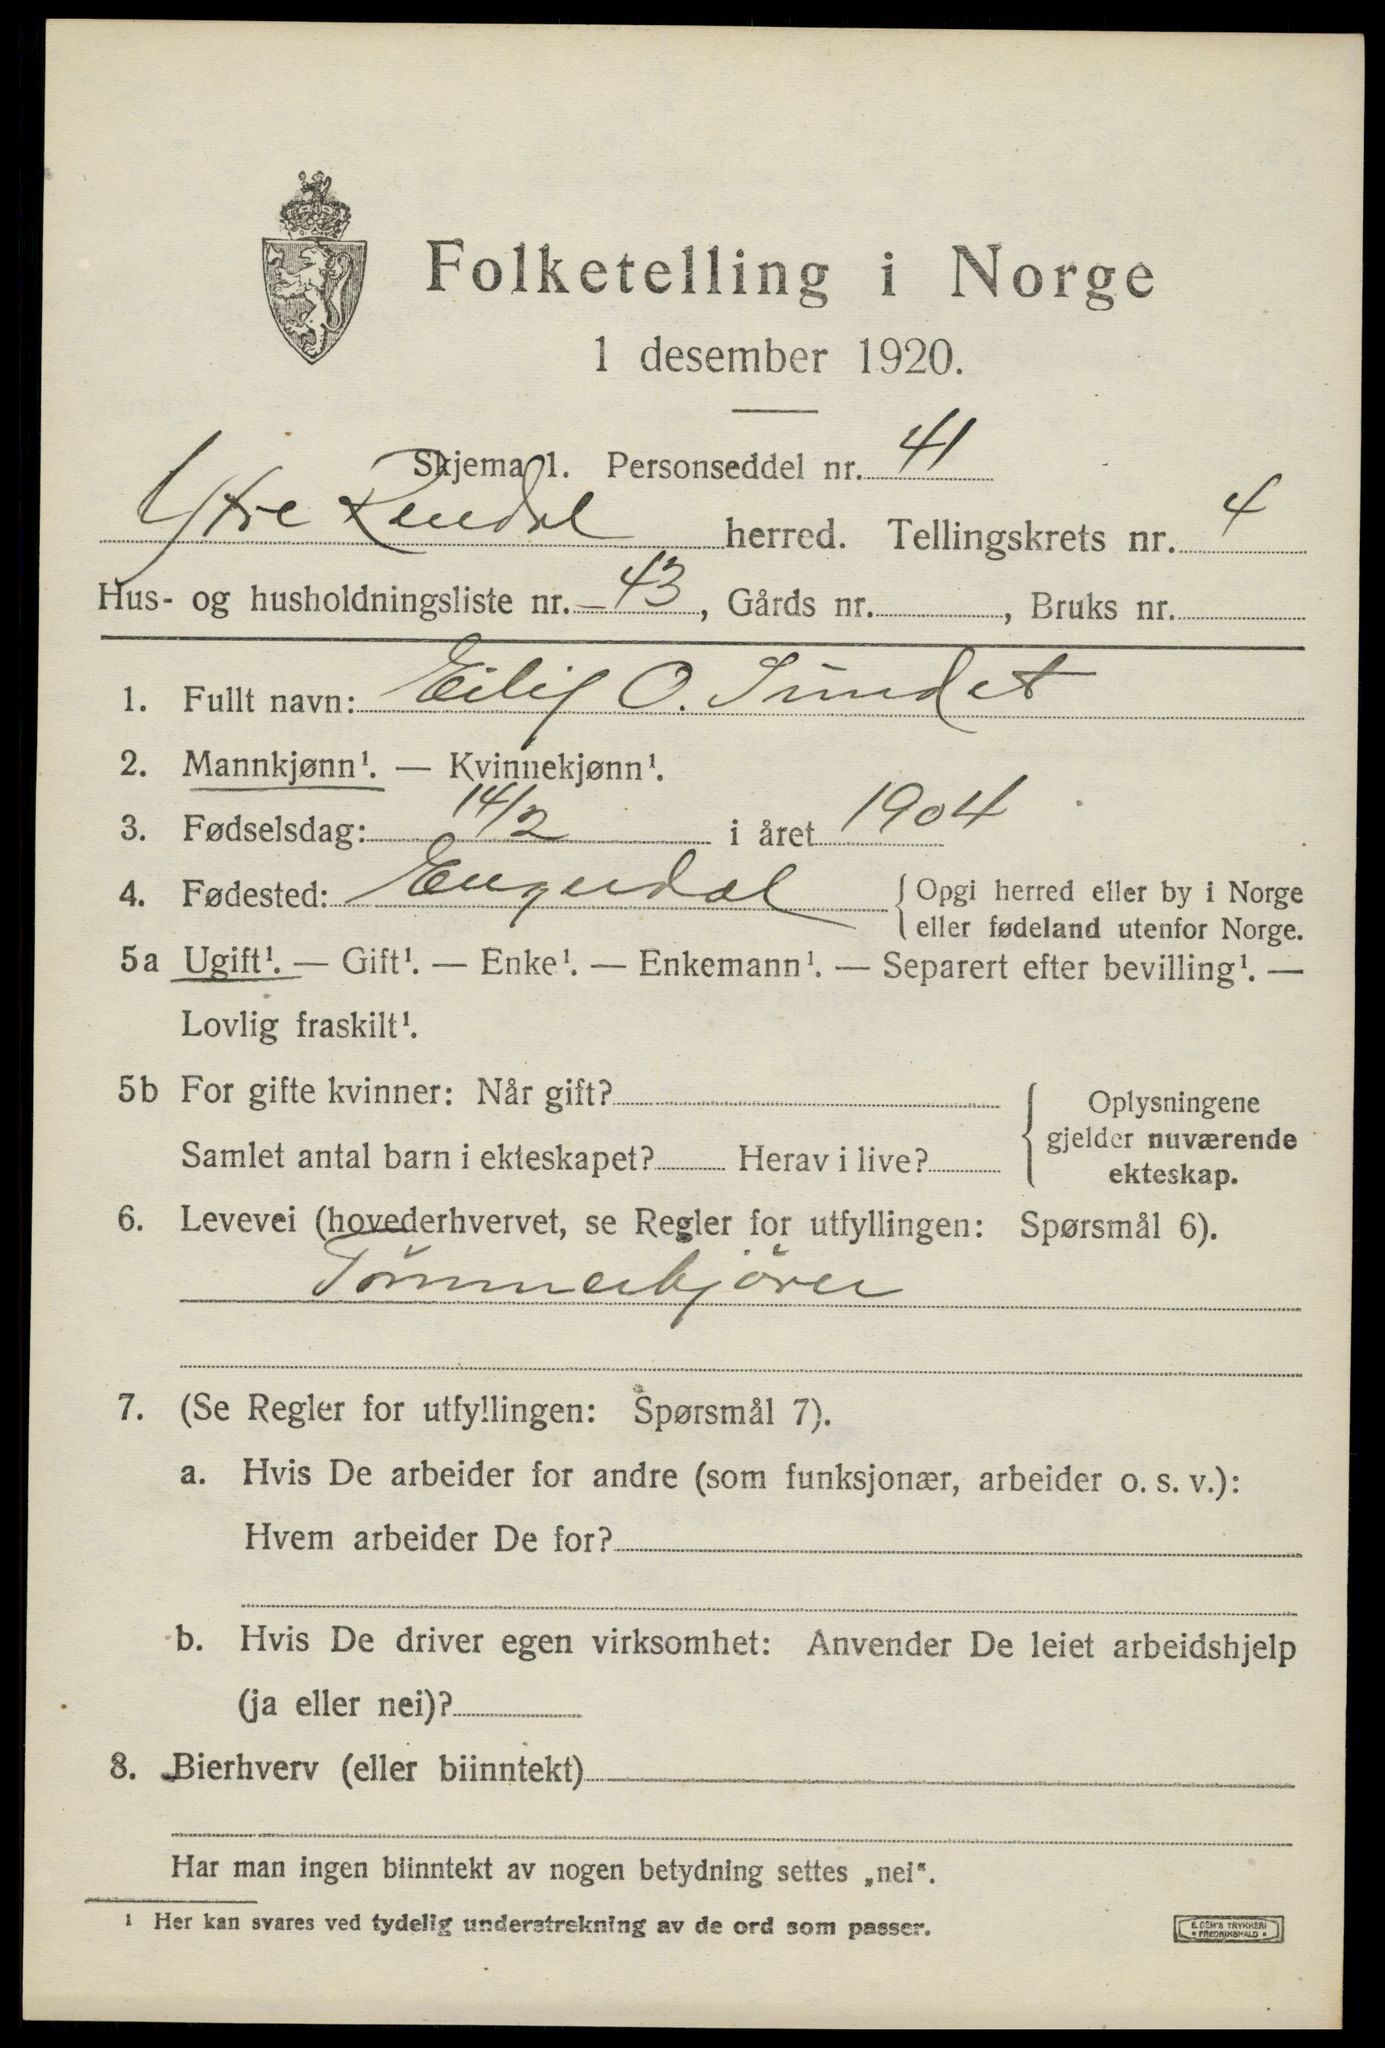 Folketelling i Norge
1 desember 1920.
Skjema 1. Personseddel nr. 41
Ytre Rendal herred. Tellingskrets nr. 4
Hus- og husholdningsliste nr. 43, Gårds nr. , Bruks nr.
1. Fullt navn: Eilif O. Sundet
2. Mannkjønn¹. — Kvinnekjønn¹.
3. Fødselsdag: 14/2 i året 1904
4. Fødested: Engerdal { Opgi herred eller by i Norge
eller fødeland utenfor Norge.
5a Ugift¹. — Gift¹. — Enke¹. — Enkemann¹. — Separert efter bevilling¹. —
Lovlig fraskilt¹.
5b For gifte kvinner: Når gift?
Samlet antal barn i ekteskapet? Herav i live?
Oplysningene
gjelder nuværende
ekteskap.
6. Levevei (hovederhvervet, se Regler for utfyllingen: Spørsmål 6).
Tömmerkjörer
7. (Se Regler for utfyllingen: Spørsmål 7).
a. Hvis De arbeider for andre (som funksjonær, arbeider o. s. v.):
Hvem arbeider De for?
b. Hvis De driver egen virksomhet: Anvender De leiet arbeidshjelp
(ja eller nei)?
8. Bierhverv (eller biinntekt)
Har man ingen biinntekt av nogen betydning settes „nei“.
¹ Her kan svares ved tydelig understrekning av de ord som passer.
E. SEM'S TRYKKERI
* FREDRIKSHALD *